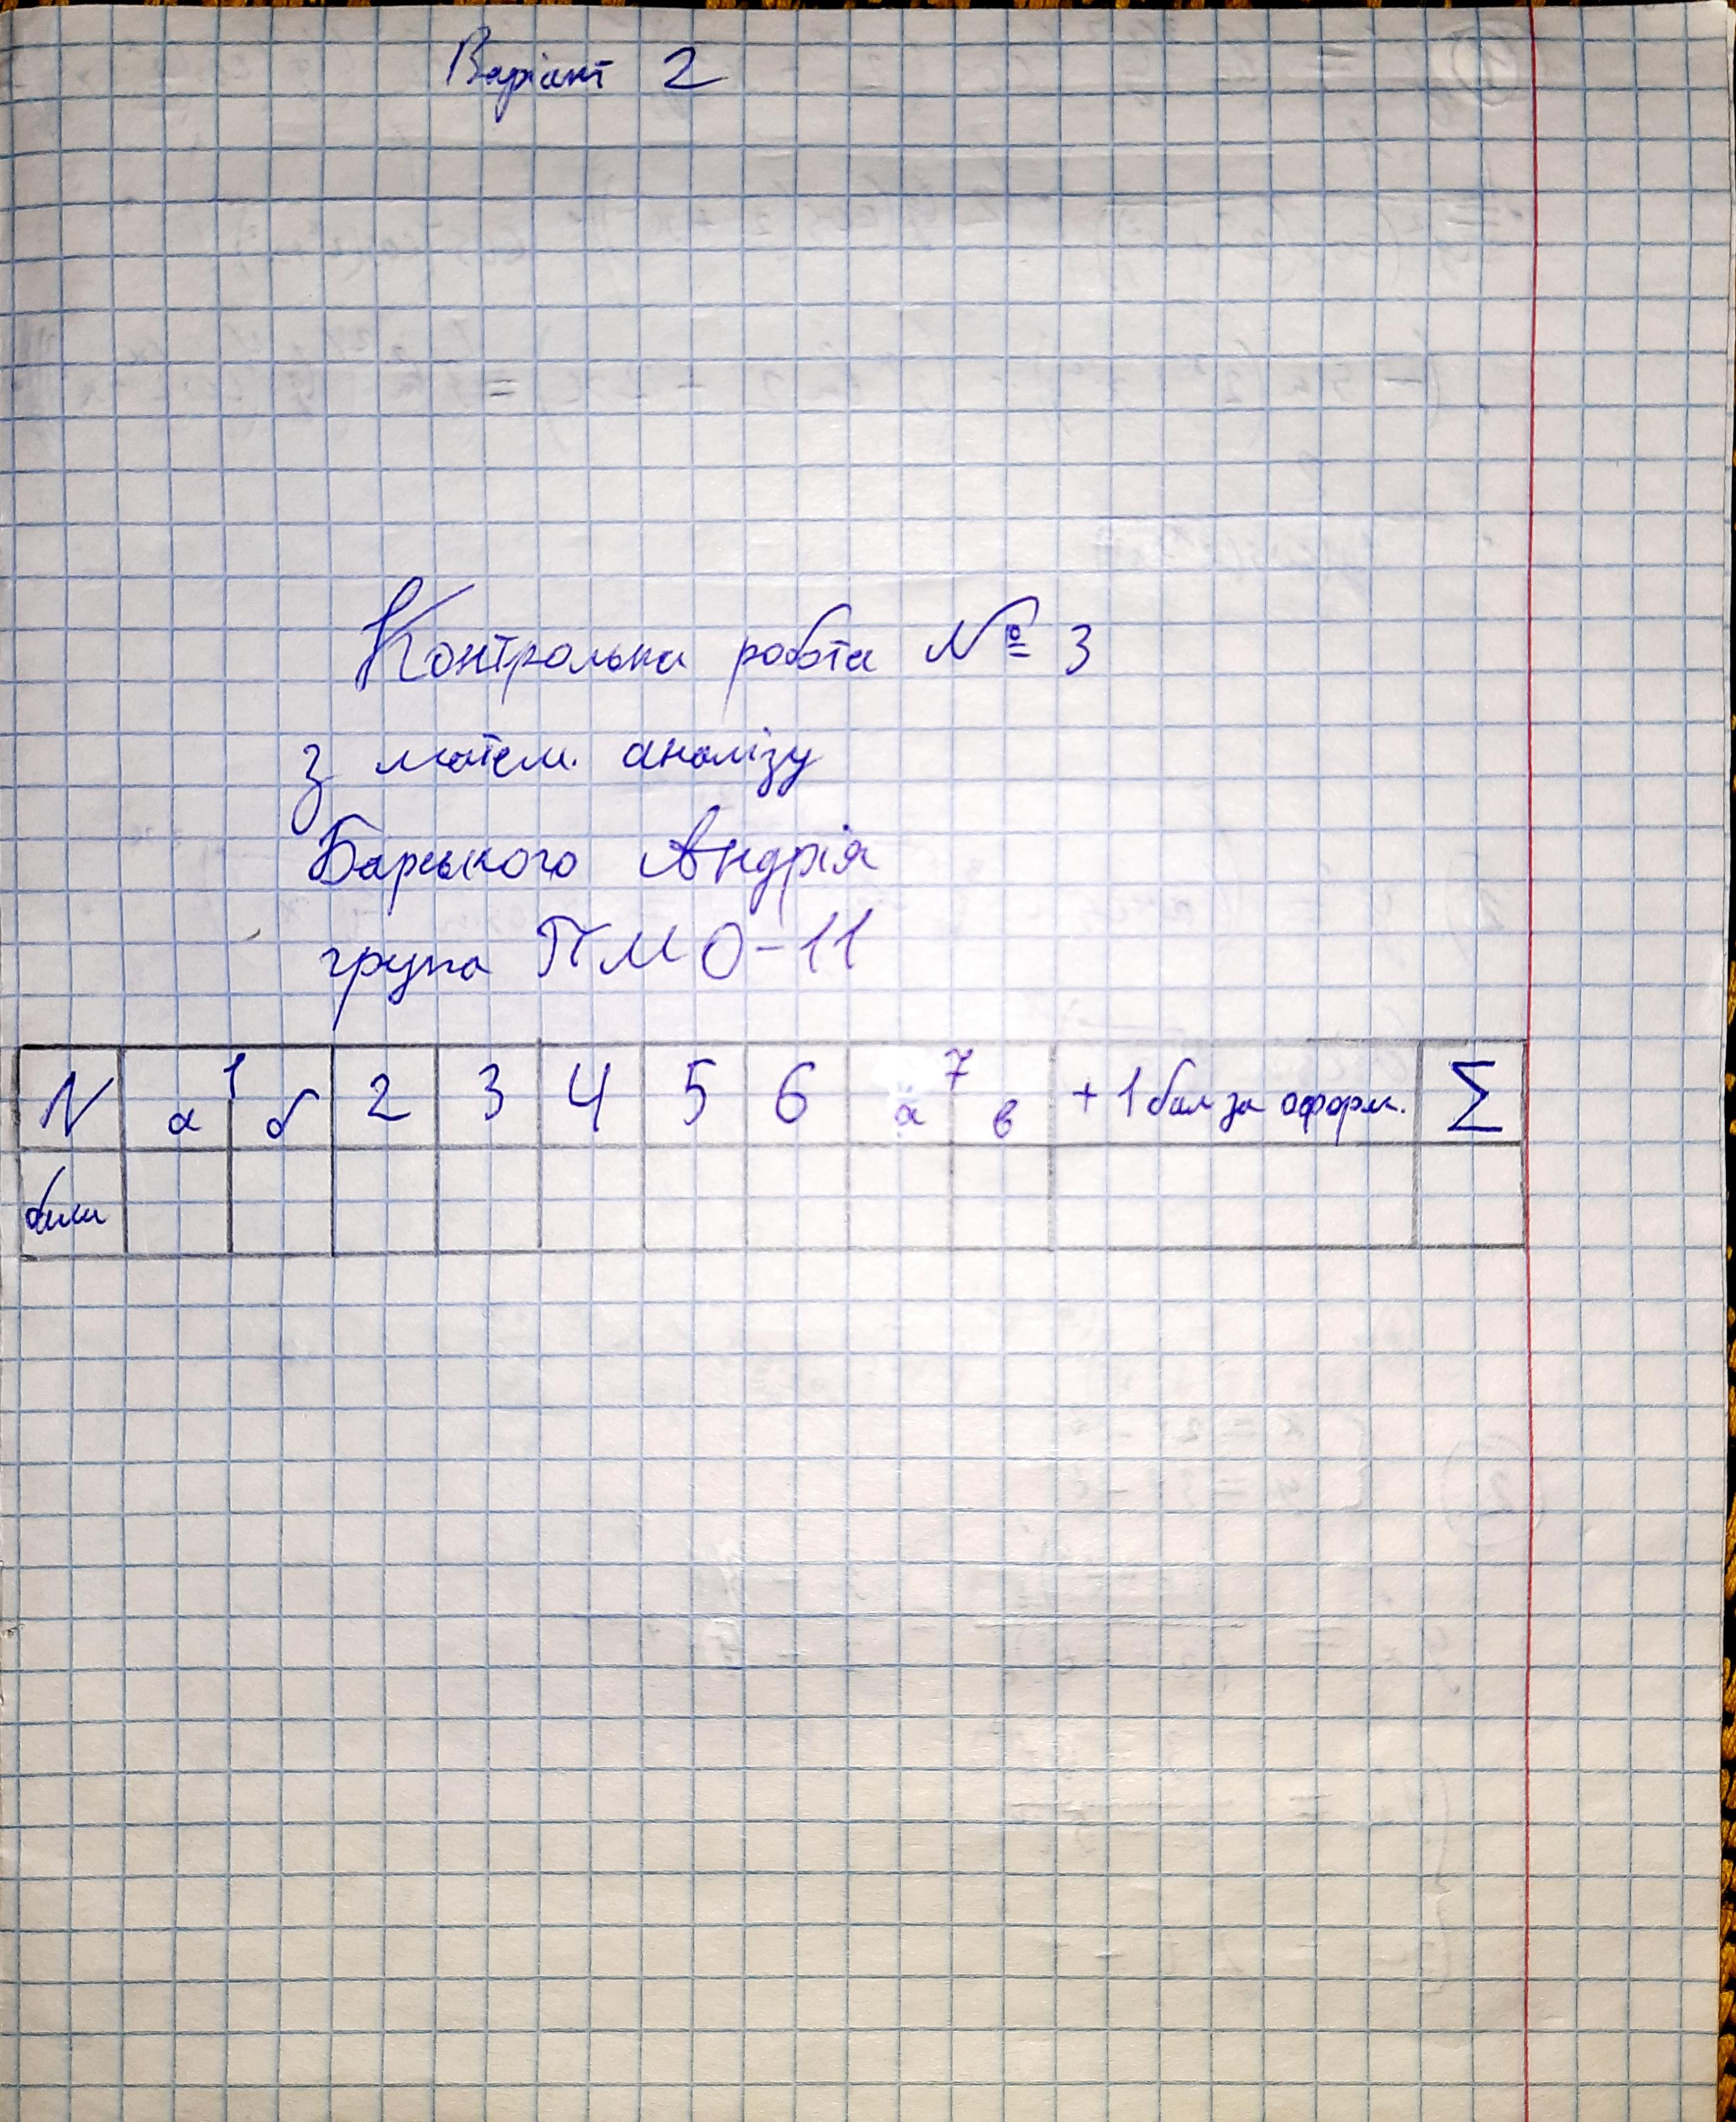 Варіант 2
Контрольна робота № 3
з матем. аналізу
Барського Андрія
група ПМО-11
N 1 а б 2 3 4 5 6 7 а в + 1 бал за оформ. Σ
бали